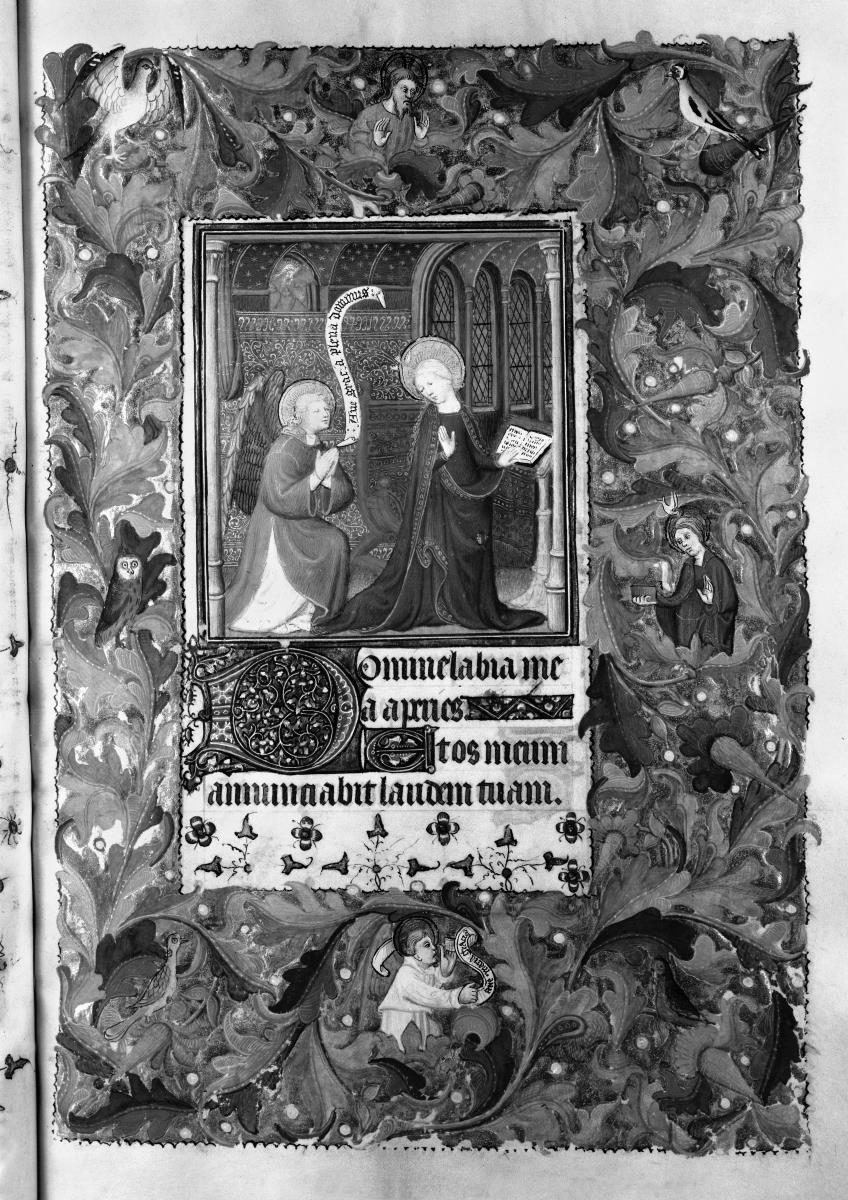 Aue grac.a plena dominus
Domine labia me
a aperies
Et os meum
annunciabit laudem tuam.